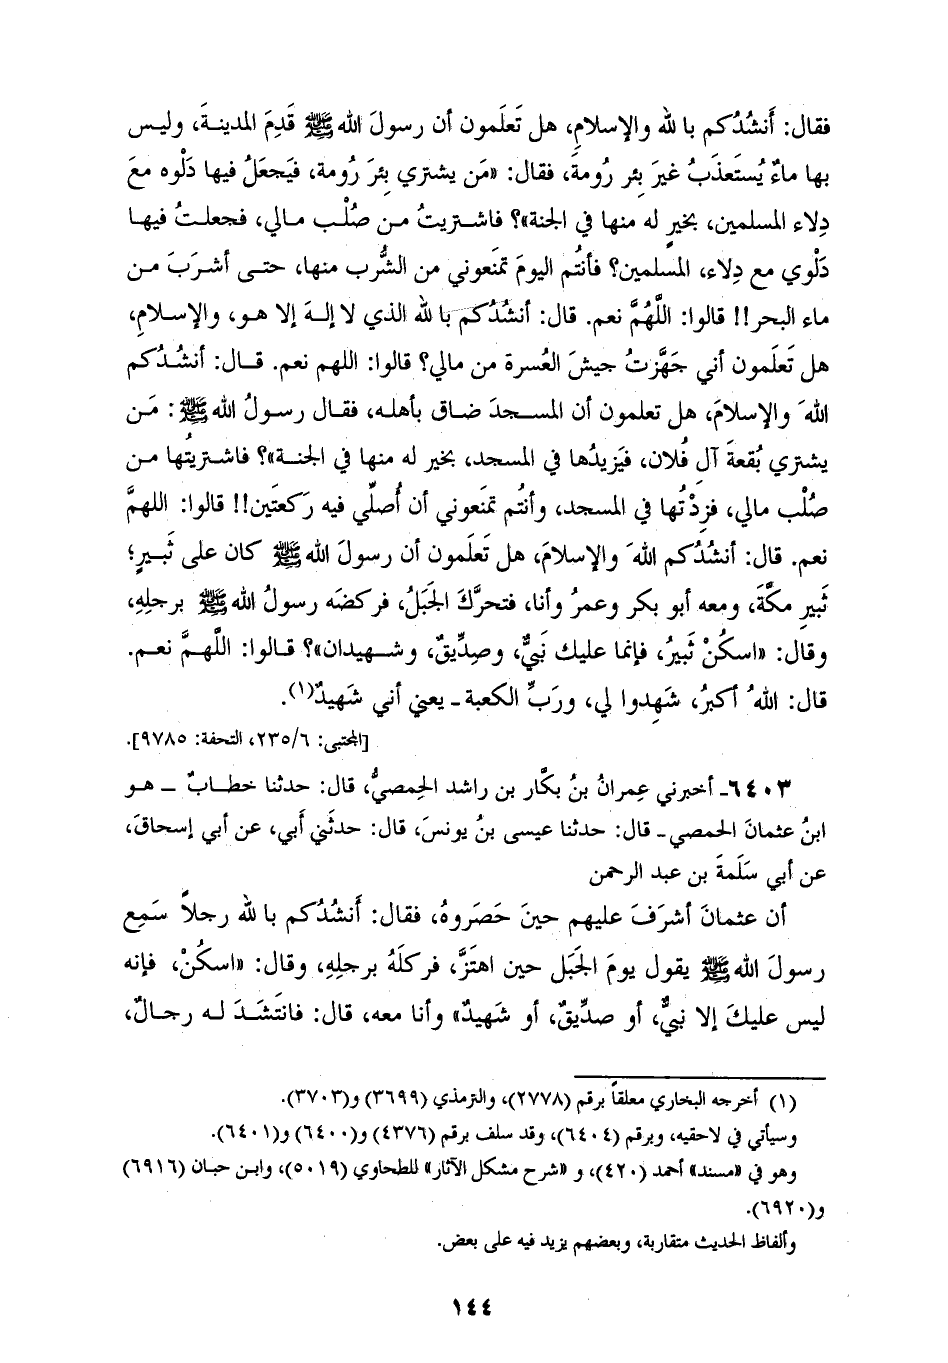 فقال: أَنشُدُكم با لله والإسلامِ، هل تَعلَمون أن رسولَ الله ﷺ قَدِمَ المدينةَ، وليس
بها ماءٌ يُستَعذَبُ غيرَ بِئرِ رُومةَ، فقال: «مَن يشتري بِئرَ رُومة، فيَجعَلُ فيها دَلْوه معَ
دِلاء المسلمين، بخيرٍ له منها في الجنة»؟ فاشتريتُ من صُلْب مالي، فجعلتُ فيها
دَلْوي مع دِلاء، المسلمين؟ فأنتُم اليومَ تمنَعوني من الشُّرب منها، حتى أشرَبَ من
ماء البحر!! قالوا: اللَّهُمَّ نعم. قال: أنشُدُكم با لله الذي لا إلهَ إلا هو، والإسلامِ،
هل تَعلَمون أني جَهَّزتُ جيشَ العُسرة من مالي؟ قالوا: اللهم نعم. قال: أنشُدُكم
اللهَ والإسلامَ، هل تعلمون أن المسجدَ ضاق بأهله، فقال رسولُ الله ﷺ: مَن
يشتري بُقعةَ آلِ فُلان، فيَزيدُها في المسجد، بخير له منها في الجنة»؟ فاشتريتُها من
صُلْب مالي، فزِدْتُها في المسجد، وأنتُم تمنَعوني أن أُصلِّي فيه رَكعتَين!! قالوا: اللهمَّ
نعم. قال: أنشُدُكم اللهَ والإسلامَ، هل تَعلَمون أن رسولَ الله ﷺ كان على ثَبيرٍ؛
ثَبيرِ مكَّةَ، ومعه أبو بكر وعمرُ وأنا، فتحرَّكَ الجَبَلُ، فركضَه رسولُ الله ﷺ برجلِهِ،
وقال: «اسكُنْ ثَبيرُ، فإنما عليك نَبيٌّ، وصِدِّيقٌ، وشهيدان»؟ قالوا: اللَّهمَّ نعم.
قال: اللهُ أكبرُ، شَهِدوا لي، ورَبِّ الكعبة ـ يعني أني شَهيدٌ(١).
[المجتبى: ٢٣٥/٦، التحفة: ٩٧٨٥].
٦٤٠٣ـ أخبرني عِمرانُ بنُ بكَّار بن راشد الحِمصيُّ، قال: حدثنا خطابٌ ـ هو
ابنُ عثمانَ الحمصي ـ قال: حدثنا عيسى بنُ يونسَ، قال: حدثَني أَبي، عن أبي إسحاقَ،
عن أبي سَلَمةَ بن عبد الرحمن
أن عثمانَ أشرَفَ عليهم حينَ حَصَروهُ، فقال: أَنشُدُكم با لله رجلاً سَمِع
رسولَ الله ﷺ يقول يومَ الجَبَل حين اهتَزَّ، فركلَهُ برجلِهِ، وقال: «اسكُنْ، فإنه
ليس عليكَ إلا نبيٌّ، أو صدِّيقٌ، أو شَهيدٌ» وأنا معه، قال: فانتَشَدَ له رجالٌ،
(١) أخرجه البخاري معلقاً برقم (٢٧٧٨)، والترمذي (٣٦٩٩) و(٣٧٠٣).
وسيأتي في لاحقيه، وبرقم (٦٤٠٤)، وقد سلف برقم (٤٣٧٦) و(٦٤٠٠) و(٦٤٠١).
وهو في «مسند» أحمد (٤٢٠)، و «شرح مشكل الآثار» للطحاوي (٥٠١٩)، وابن حبان (٦٩١٦)
و(٦٩٢٠).
وألفاظ الحديث متقاربة، وبعضهم يزيد فيه على بعض.
١٤٤